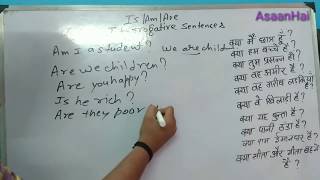 Is/Am/Are
AsaanHai
Interrogative Sentences
Am I a student? We are children
Are we children?
Are you happy?
Is he rich?
Are they poor
क्या मैं छात्र हूँ?
क्या हम बच्चे हैं?
क्या तुम प्रसन्न हो?
क्या वह अमीर है?
क्या वह गरीब लड़कियाँ हैं?
क्या वे खिलाड़ी हैं?
क्या यह कुत्ता है?
क्या पानी ठंडा है?
क्या राम ईमानदार है?
क्या सीता और गीता बहनें हैं?